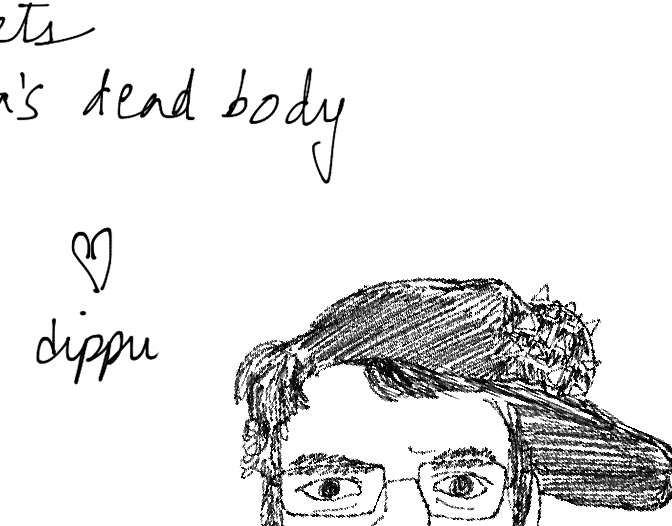 ets
a's dead body
♡
dippu